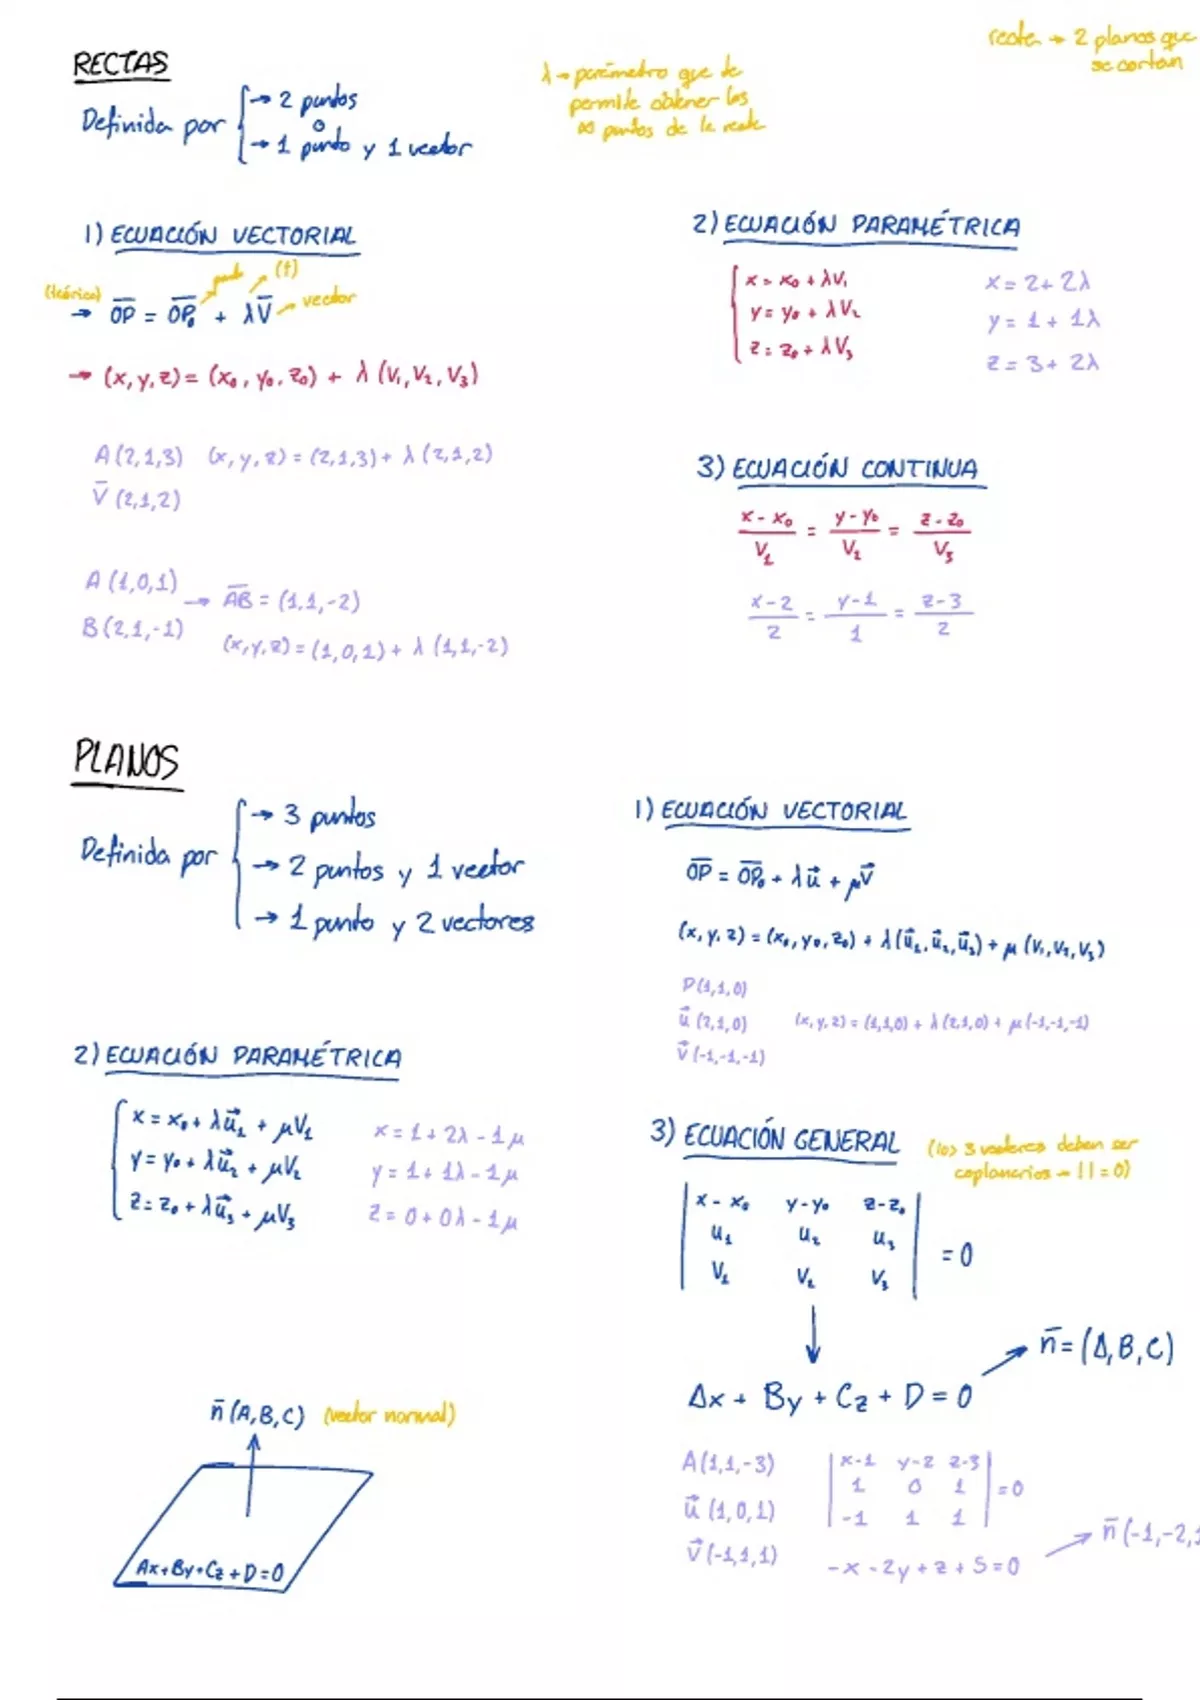 RECTAS
Definida por
→ 2 puntos
o
→ 1 punto y 1 vector
λ → parámetro que te
permite obtener los
∞ puntos de la recta
recta → 2 planos que
se cortan
1) ECUACIÓN VECTORIAL
(teórica) → OP = OP₀ + λV
punto
(t)
vector
→ (x, y, z) = (x₀, y₀, z₀) + λ (V₁, V₂, V₃)
A (2,1,3) (x, y, z) = (2,1,3) + λ (2,1,2)
V (2,1,2)
A (1,0,1)
B (2,1,-1)
→ AB = (1,1,-2)
(x, y, z) = (1,0,1) + λ (1,1,-2)
2) ECUACIÓN PARAMÉTRICA
x = x₀ + λV₁
y = y₀ + λV₂
z = z₀ + λV₃
x = 2 + 2λ
y = 1 + 1λ
z = 3 + 2λ
3) ECUACIÓN CONTINUA
x - x₀ / V₁ = y - y₀ / V₂ = z - z₀ / V₃
x - 2 / 2 = y - 1 / 1 = z - 3 / 2
PLANOS
Definida por
→ 3 puntos
→ 2 puntos y 1 vector
→ 1 punto y 2 vectores
1) ECUACIÓN VECTORIAL
OP = OP₀ + λu + μv
(x, y, z) = (x₀, y₀, z₀) + λ (u₁, u₂, u₃) + μ (V₁, V₂, V₃)
P (1,1,0)
u (2,1,0) (x, y, z) = (1,1,0) + λ (2,1,0) + μ (-1,-1,-1)
v (-1,-1,-1)
2) ECUACIÓN PARAMÉTRICA
x = x₀ + λu₁ + μV₁
y = y₀ + λu₂ + μV₂
z = z₀ + λu₃ + μV₃
x = 1 + 2λ - 1μ
y = 1 + 1λ - 1μ
z = 0 + 0λ - 1μ
3) ECUACIÓN GENERAL
(los 3 vectores deben ser
coplanarios → | | = 0)
x - x₀ y - y₀ z - z₀
u₁ u₂ u₃
V₁ V₂ V₃
= 0
Ax + By + Cz + D = 0
n = (A, B, C)
A (1,1,-3)
u (1,0,1)
v (-1,1,1)
x-1 y-2 z-3
1 0 1
-1 1 1
= 0
-x - 2y + z + 5 = 0
n (-1,-2,1
n (A, B, C) (vector normal)
Ax + By + Cz + D = 0